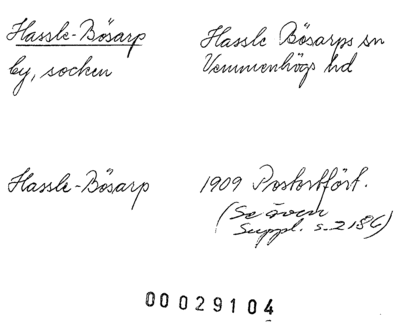 Hassle-Bösarp
by, socken
Hassle Bösarps sn
Vemmenhögs hd
Hassle-Bösarp
1909 Postortfört.
(Se även
Suppl. s. 2186)
00 029104